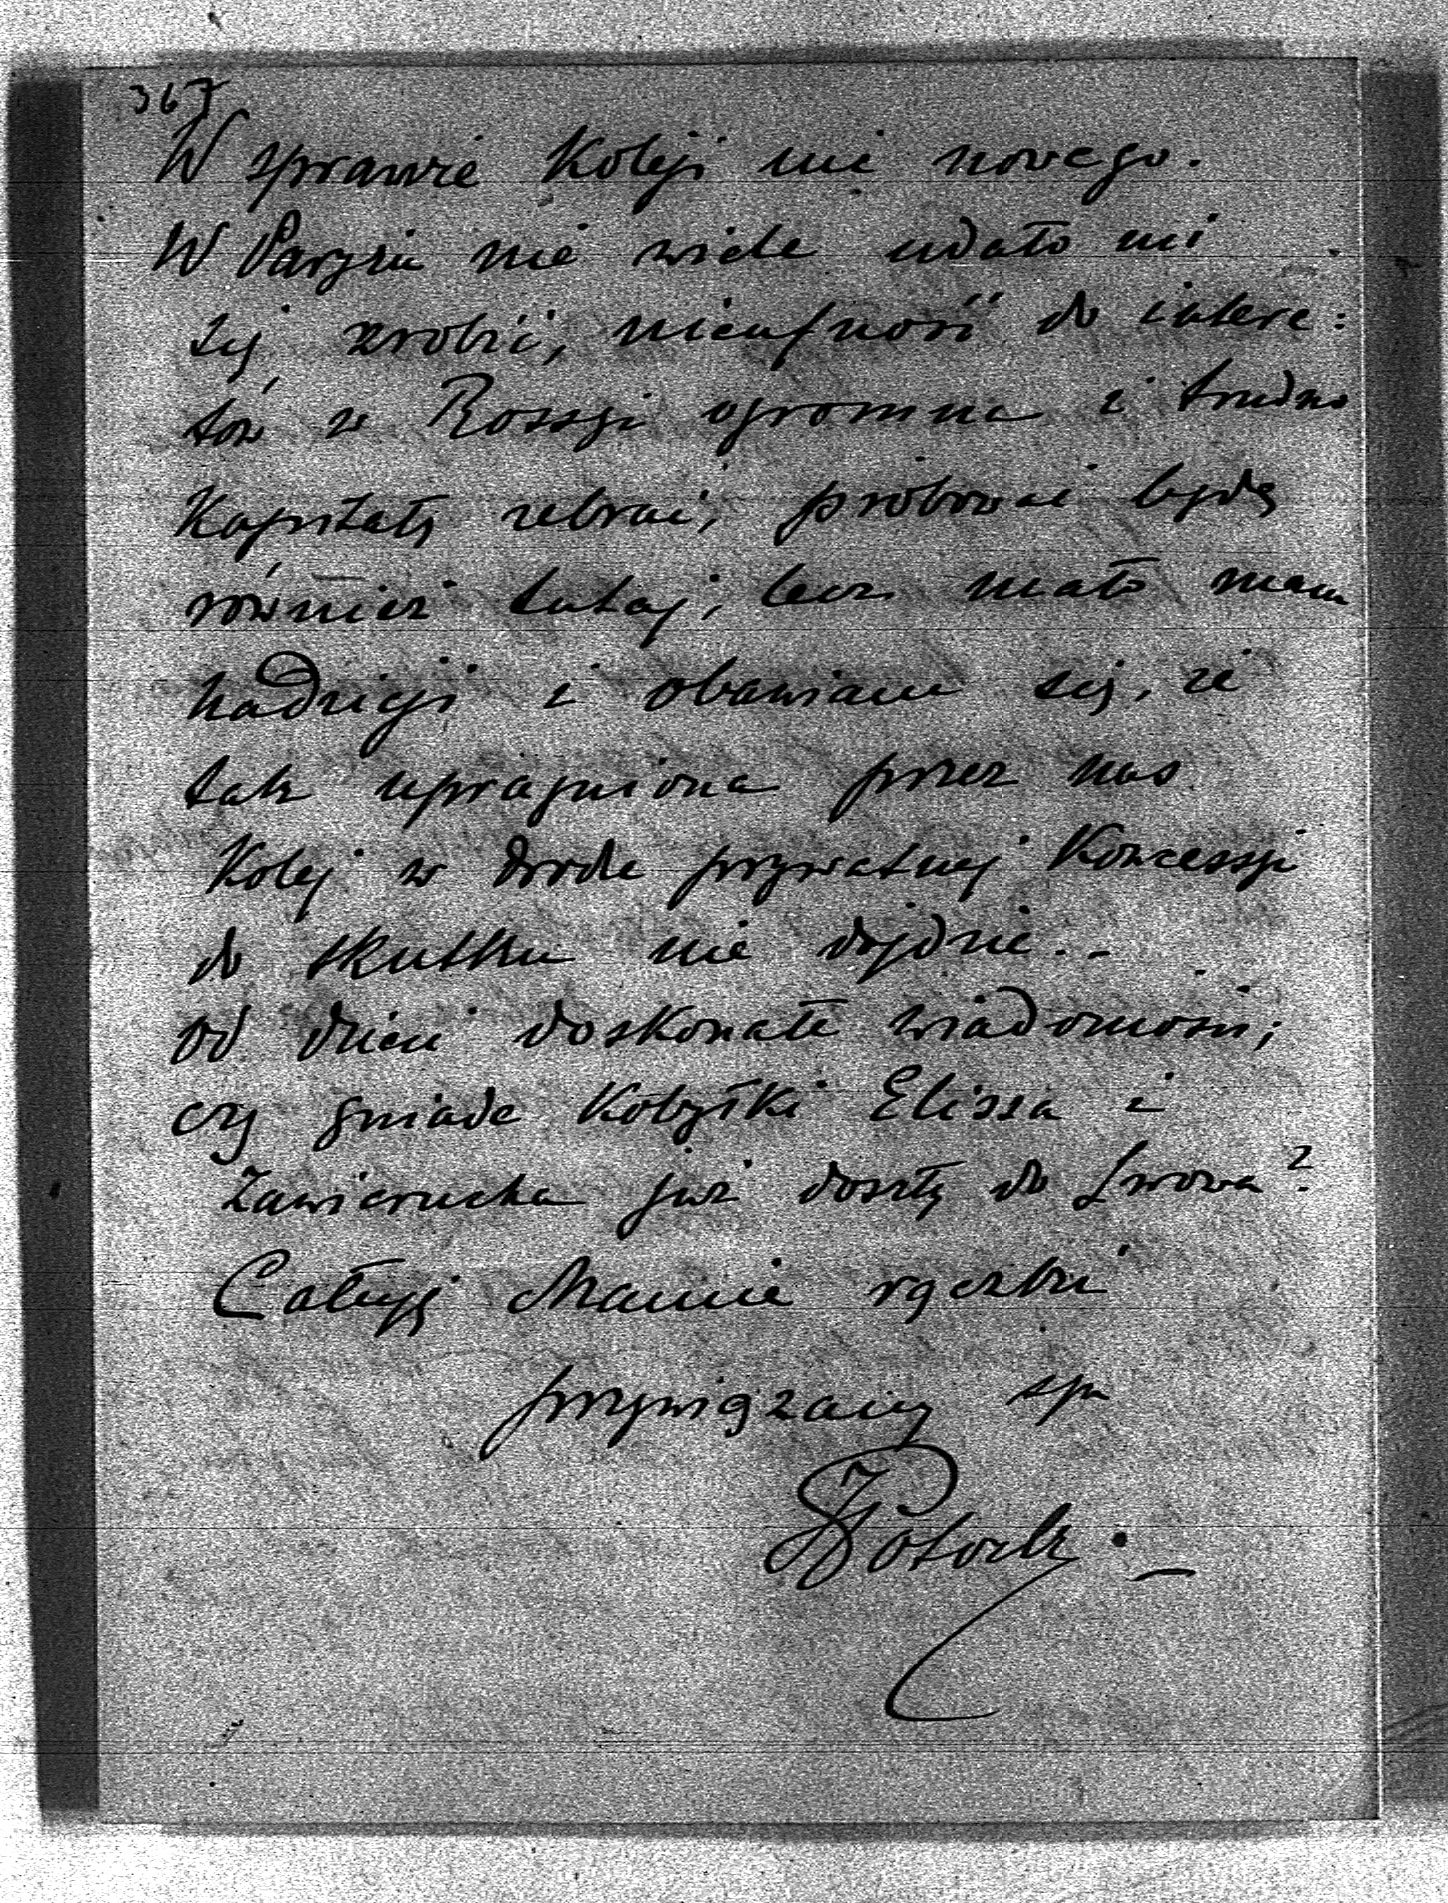 367
W sprawie Koleji nic nowego.
W Paryżu nie wiele udało mi
się zrobić, nieufność do intere:
sów w Rossyi ogromna i trudno
Kapitały zebrać, próbować będę
również tutaj, lecz mało mam
nadzieji i obawiam się, że
tak upragniona przez nas
Kolej w drodze prywatnej Koncessyi
do skutku nie dojdzie. -
Od dzieci doskonałe wiadomości;
czy gniade Kobyłki Elissa i
Zawierucha już doszły do Lwowa?
Całuję Mamie rączki
przywiązany syn
Potocki. -